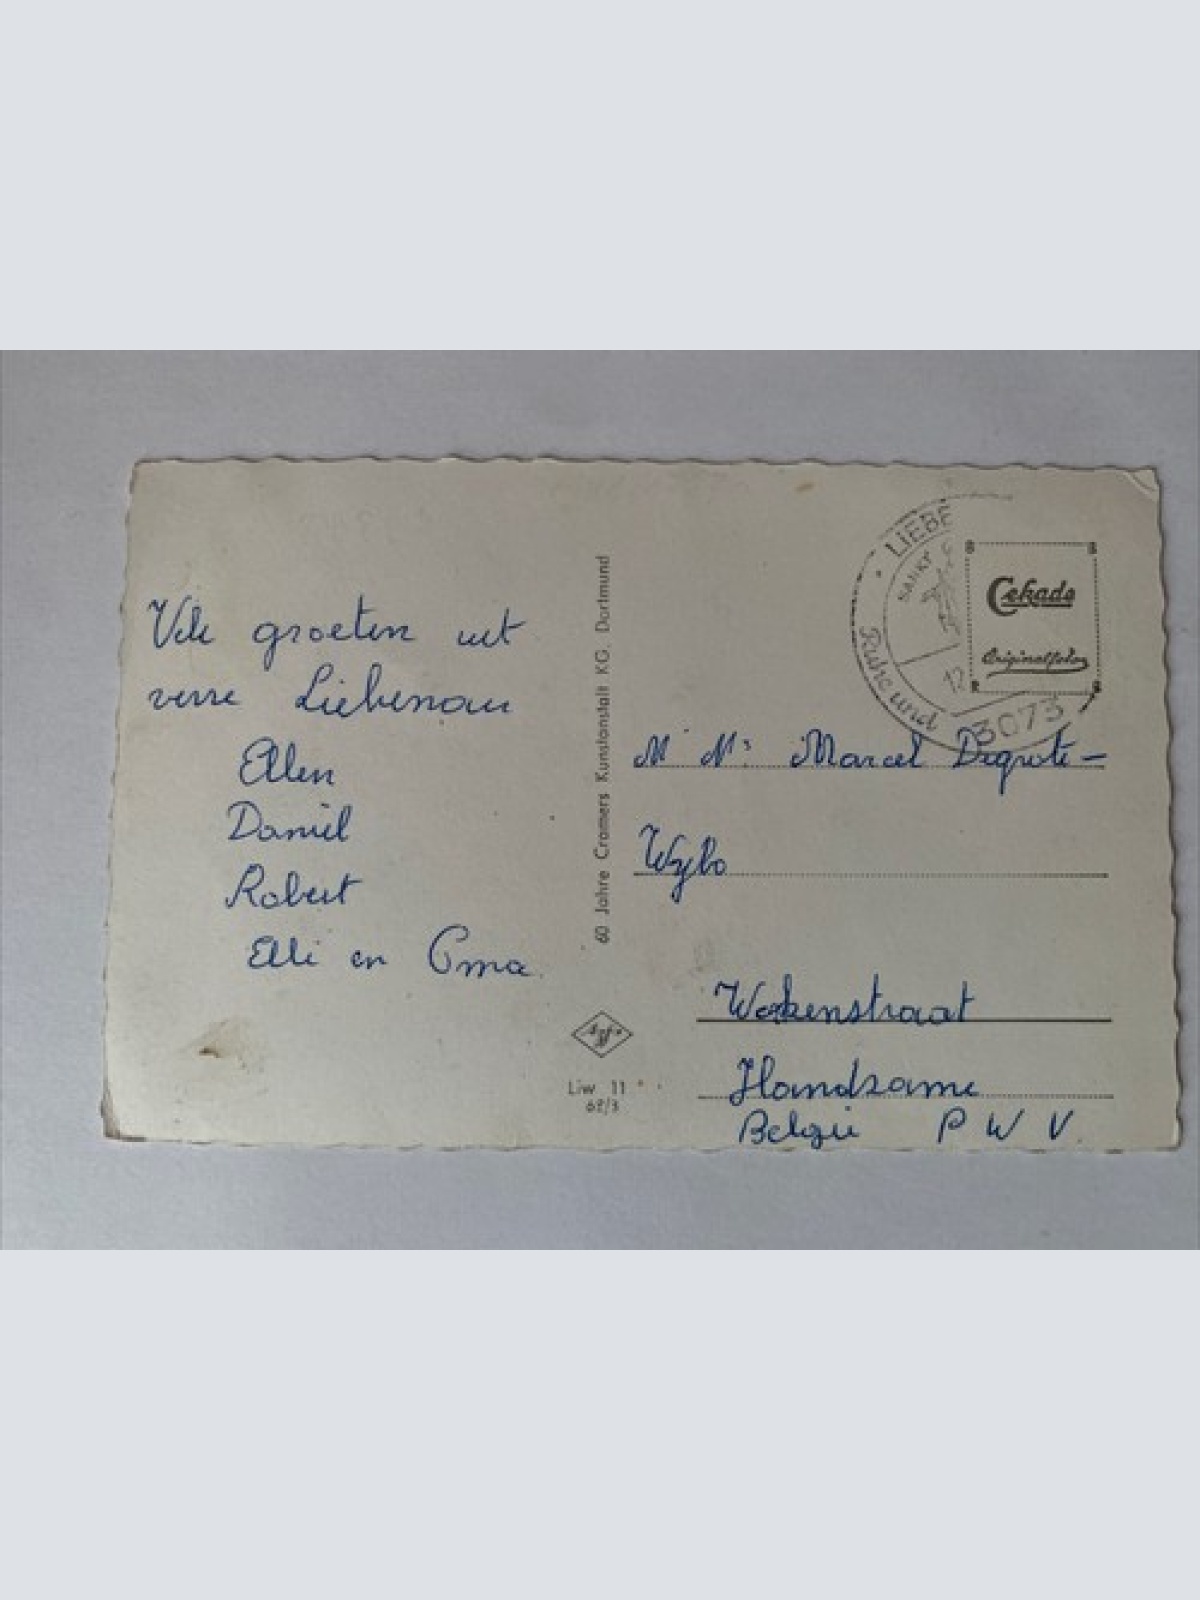 Vele groeten uit
verre Liebenau
Ellen
Daniël
Robert
Elli en Oma
60 Jahre Cramers Kunstanstalt KG. Dortmund
Agfa
Liw 11
62/3
LIEBE
SANKT
Ruhe und
12
3073
Cekade
Originalfoto
M Mr Marcel Degrote-
Wylo
Wokenstraat
Handzame
België P W V